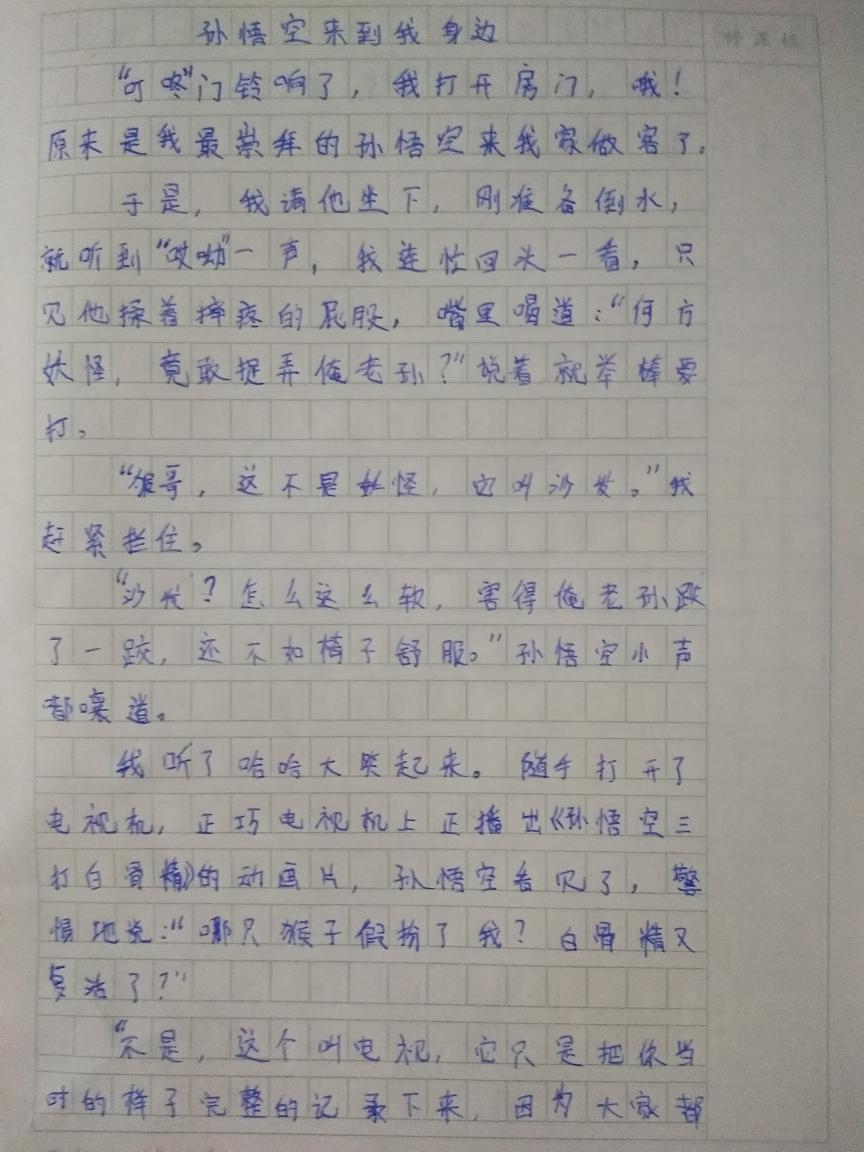 孙悟空来到我身边
修正栏
“叮咚”门铃响了，我打开房门，哦！
原来是我最崇拜的孙悟空来我家做客了。
于是，我请他坐下，刚准备倒水，
就听到“哎呦”一声，我连忙回头一看，只
见他揉着摔疼的屁股，嘴里喝道：“何方
妖怪，竟敢捉弄俺老孙？”说着就举棒要
打。
“猴哥，这不是妖怪，它叫沙发。”我
赶紧拦住。
“沙发？怎么这么软，害得俺老孙跌
了一跤，还不如椅子舒服。”孙悟空小声
嘟嚷道。
我听了哈哈大笑起来。随手打开了
电视机，正巧电视机上正播出《孙悟空三
打白骨精》的动画片，孙悟空看见了，警
惕地说：“哪只猴子假扮了我？白骨精又
复活了？”
“不是，这个叫电视，它只是把你当
时的样子完整的记录下来，因为大家都